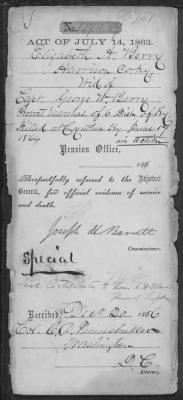 No.
ACT OF JULY 14, 1862.
Elizabeth A. Berry
Harrison Co. Ky.
Wid of
Capt. George W. Berry
Provost Marshal of 6 Dist. of Ky
Killed at Cynthiana Ky June
1864 in action
Pension Office,
186
Respectfully referred to the Adjutant
General, for official evidence of service
and death.
Joseph H. Barrett
Commissioner.
Special
Send Certificate to Hon.
Received, Dec 20 1866
Col. C. C. Pennebaker
Washington
D. C.
Attorney.